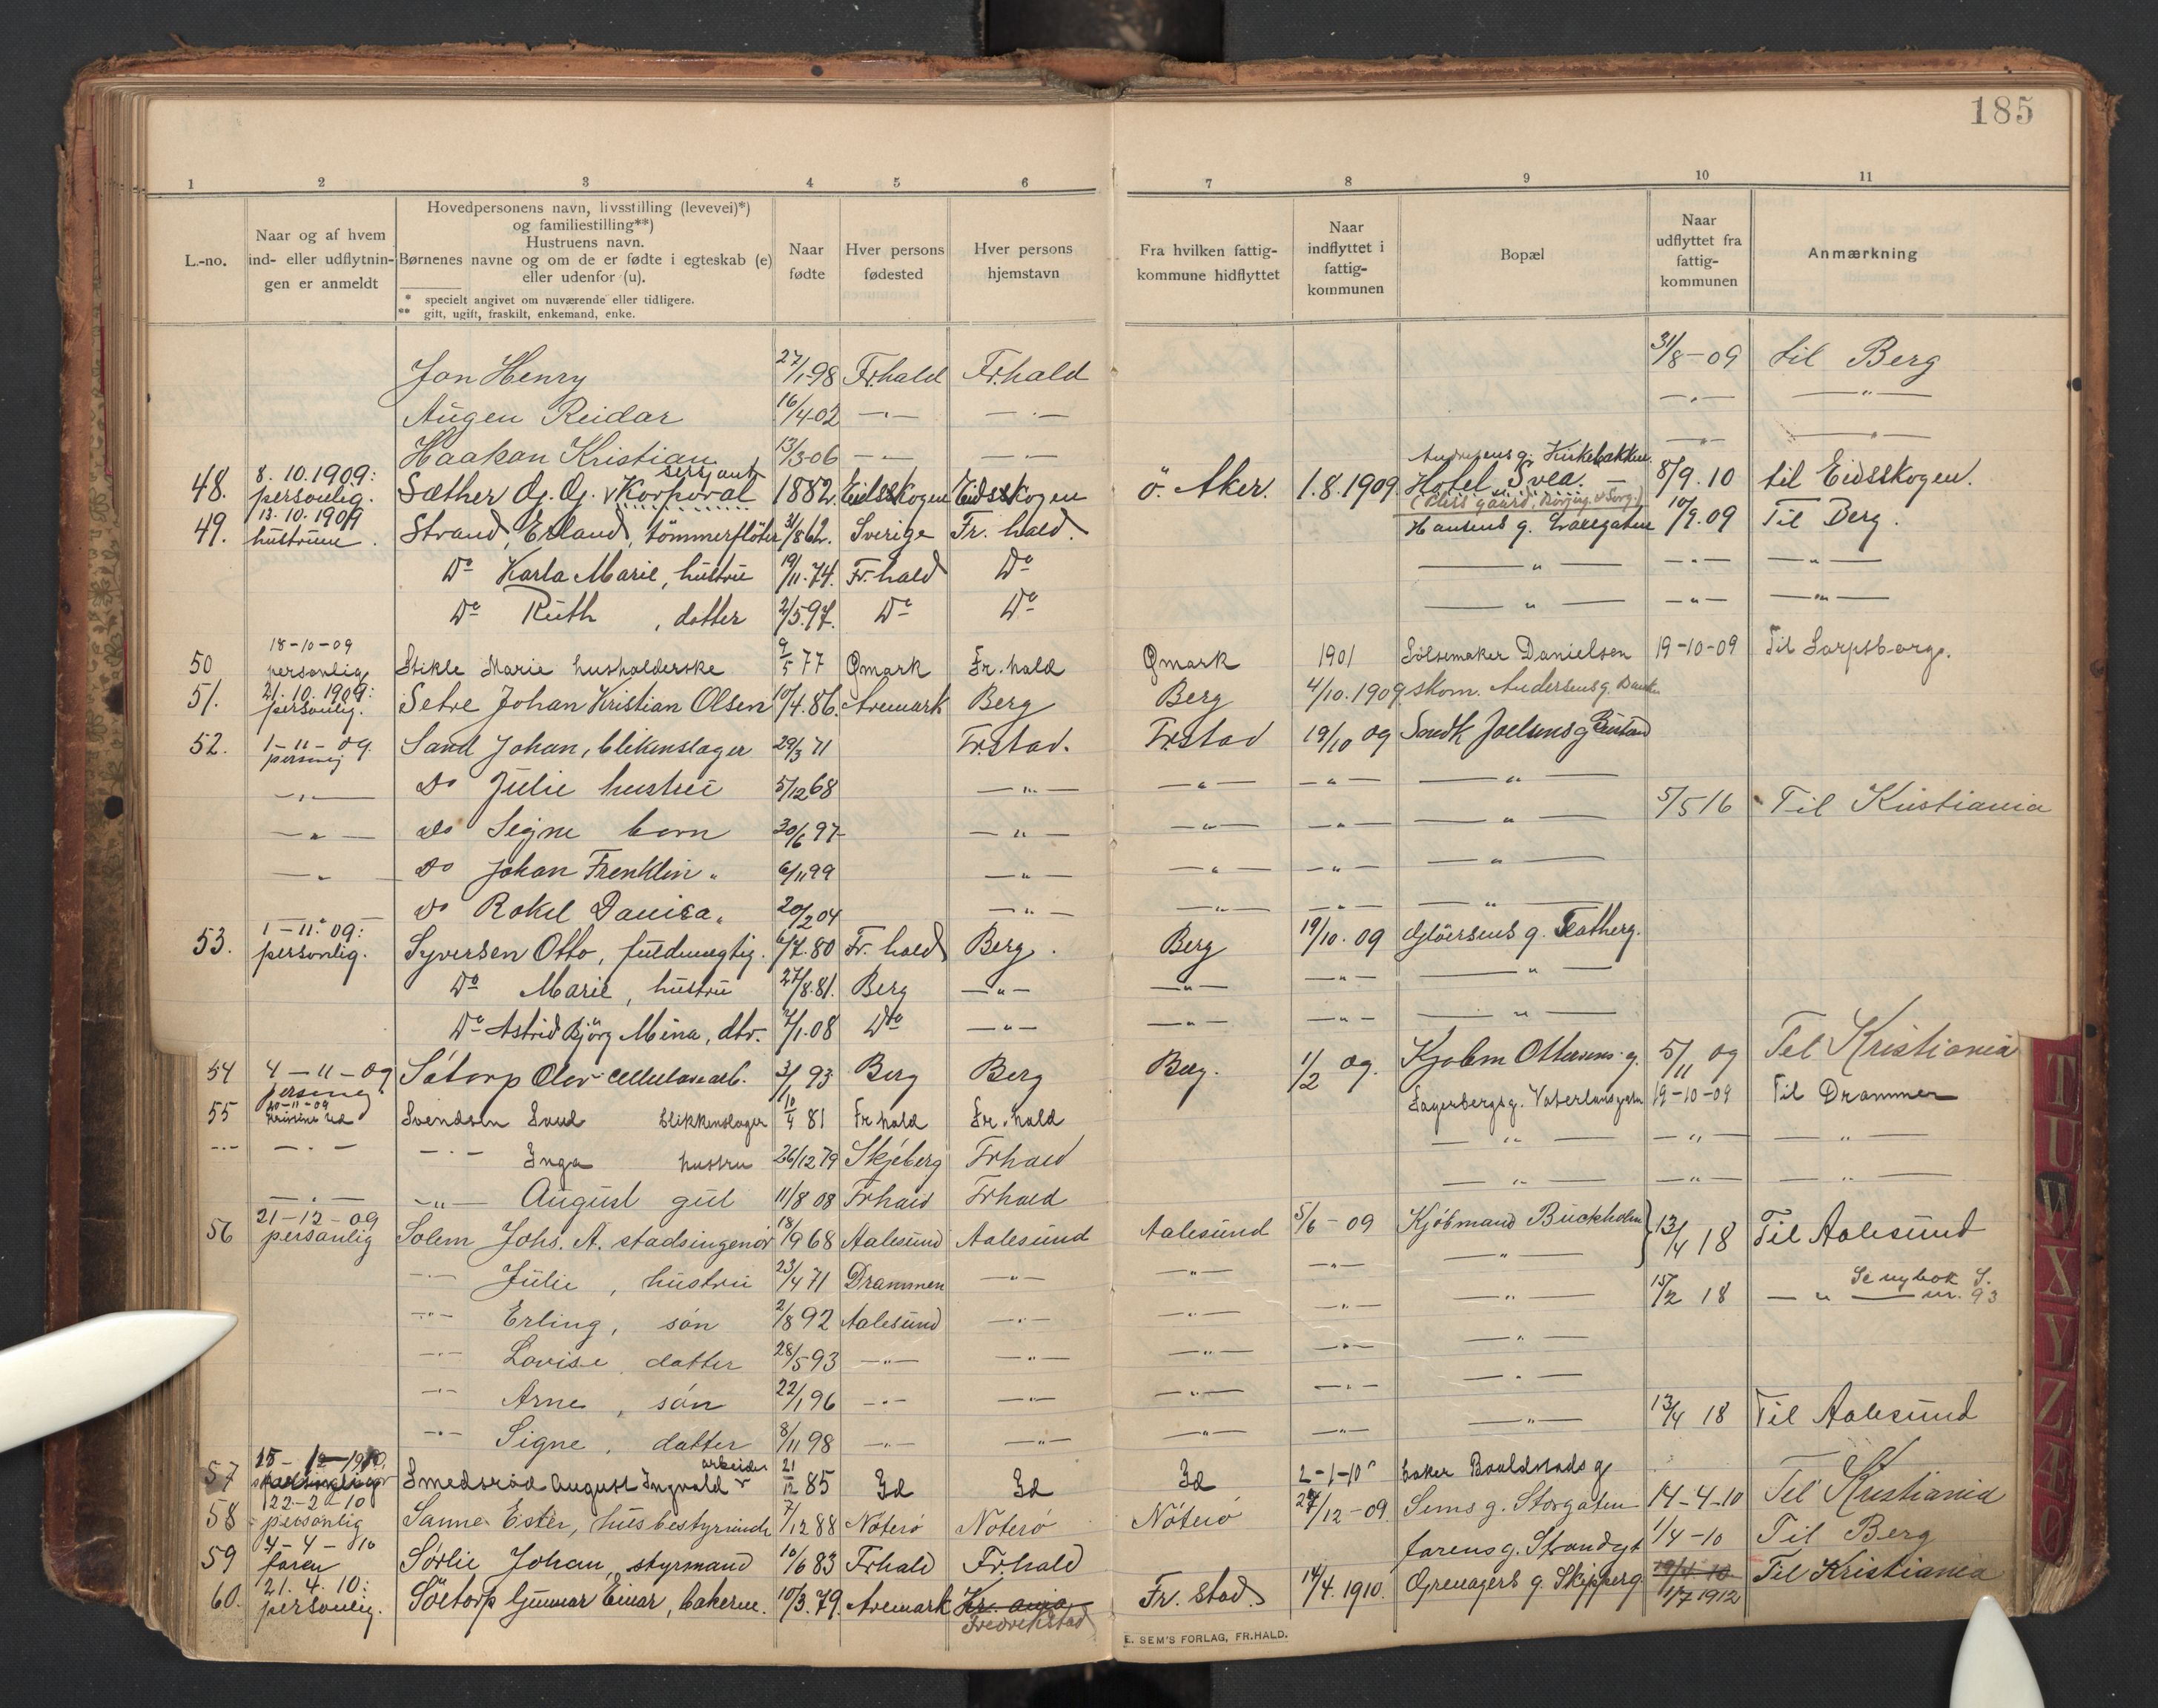 185
1 2 3 4 5 6 7 8 9 10 11
L.-no.
Naar og af hvem ind- eller udflytningen er anmeldt
Hovedpersonens navn, livsstilling (levevei)*)
og familiestilling**)
Hustruens navn.
Børnenes navne og om de er fødte i egteskab (e)
eller udenfor (u).
* specielt angivet om nuværende eller tidligere.
** gift, ugift, fraskilt, enkemand, enke.
Naar fødte
Hver persons fødested
Hver persons hjemstavn
Fra hvilken fattigkommune hidflyttet
Naar indflyttet i fattigkommunen
Bopæl
Naar udflyttet fra fattigkommunen
Anmærkning
Jon Henry 27/1-98 Fr.hald Fr.hald 31/8-09 til Berg
Augen Reidar 16/4-02 —„— —„— —„— —„—
Haakon Kristian 13/3-06 —„— —„— —„— —„—
48. 8.10.1909: personlig. Sæther O. O. Korporal sersjant 1882. Eidsskogen Eidsskogen Ö. Aker. 1.8.1909 Hotel Svea. Kirkebakken 8/9.10 til Eidsskogen.
49. 13.10.1909 hustruen. Strand, Erland, tömmerflöter 31/8 62. Sverige Fr. hald. Hansens g. 10/9.09 Til Berg.
Do Karla Marie, hustru 19/11.74. Fr. hald Do —„— —„— —„—
Do Ruth, datter 2/5.97. Do Do —„— —„— —„—
50 18-10-09 personlig Stikle Marie husholderske 9/5 77 Ømark Fr.hald Ømark 1901 Pölsemaker Danielsen 19-10-09 Til Sarpsborg.
51. 21.10.1909: personlig. Setre Johan Kristian Olsen 10/4.86. Aremark Berg Berg 4/10.1909 skom. Andersens g.
52. 1-11-09. Sand Johan, blikenslager 29/3 71 Fr.stad. Fr.stad 19/10 09 Joelsens g
—„— Do Julie hustru 5/12 68 —„— —„— —„— —„—
—„— Do Signe barn 30/6 97 —„— —„— —„— —„— 5/5 16 Til Kristiania
—„— Do Johan Frenklin „ 6/11 99 —„— —„— —„— —„—
Do Rakel „ 20/2 04 —„— —„— —„— —„—
53. 1-11-09: personlig. Syversen Otto, fuldmægtig. 6/7.80 Fr. hald Berg. Berg 19/10.09
Do Marie, hustru 27/8.81. Berg —„— —„— —„— —„—
Do Astrid Björg Mina, dtr. 7/1.08 Do —„— —„— —„— —„—
54 4-11-09 Såtorp Olov cellulosearb. 3/1 93 Berg Berg Berg. 1/2 09. Kjøbm Ottersens g. 5/11 09 Til Kristiania
55 20-11-09 Svendsen blikkenslager 10/4 81 Fr hald Fr. hald Vaterlandsgaten 19-10-09 Til Drammen
—„— —„— —„— Inga hustru 26/12 79 Skjeberg Frhald —„— —„— —„—
—„— —„— August gut 11/8 08 Frhald Frhald —„— —„— —„—
56 21-12-09 personlig Solem Johs. A. stadsingeniør 18/9 68 Aalesund Aalesund Aalesund 5/6-09 Kjøbmand Buckholm 13/4 18 Til Aalesund
—„— Julie, hustru 23/4 71 Drammen —„— —„— —„— —„—
—„— Erling, sön 2/8 92 Aalesund —„— —„— —„— —„— 15/2 18 —„— Se ny bok S. nr. 93
—„— Lovise, datter 28/5 93 —„— —„— —„— —„— —„—
—„— Arne, sön 22/1 96 —„— —„— —„— —„— —„—
—„— Signe, datter 8/11 98 —„— —„— —„— —„— —„— 13/4 18 Til Aalesund
57 Smedsröd August Ingvald arbeider 21/12 85 Id Id Id 2-1-10 baker
58 22-2-10 personlig Sanne Ester, husbestyrerinde 7/12 88 Nøterø Nøterø Nøterø 27/12-09 Sems g. Storgaten 14-4-10 Til Kristiania
59 4-4-10 faren Sørlie Johan, styrmand 10/6 83 Frhald Fr.hald farens g. Strandgt 1/4-10 Til Berg
60. 21.4.10: personlig. Söetorp Gunnar Einar, bakersv. 10/3.79. Aremark Kr. ania Fredrikstad Fr. stad. 14/4.1910. Grenagers g. Skipperg 19/4.10 11/7 1912 Til Kristiania
E. SEM'S FORLAG, FR.HALD.
T
U
W
X
Y
Z
Æ
Ø